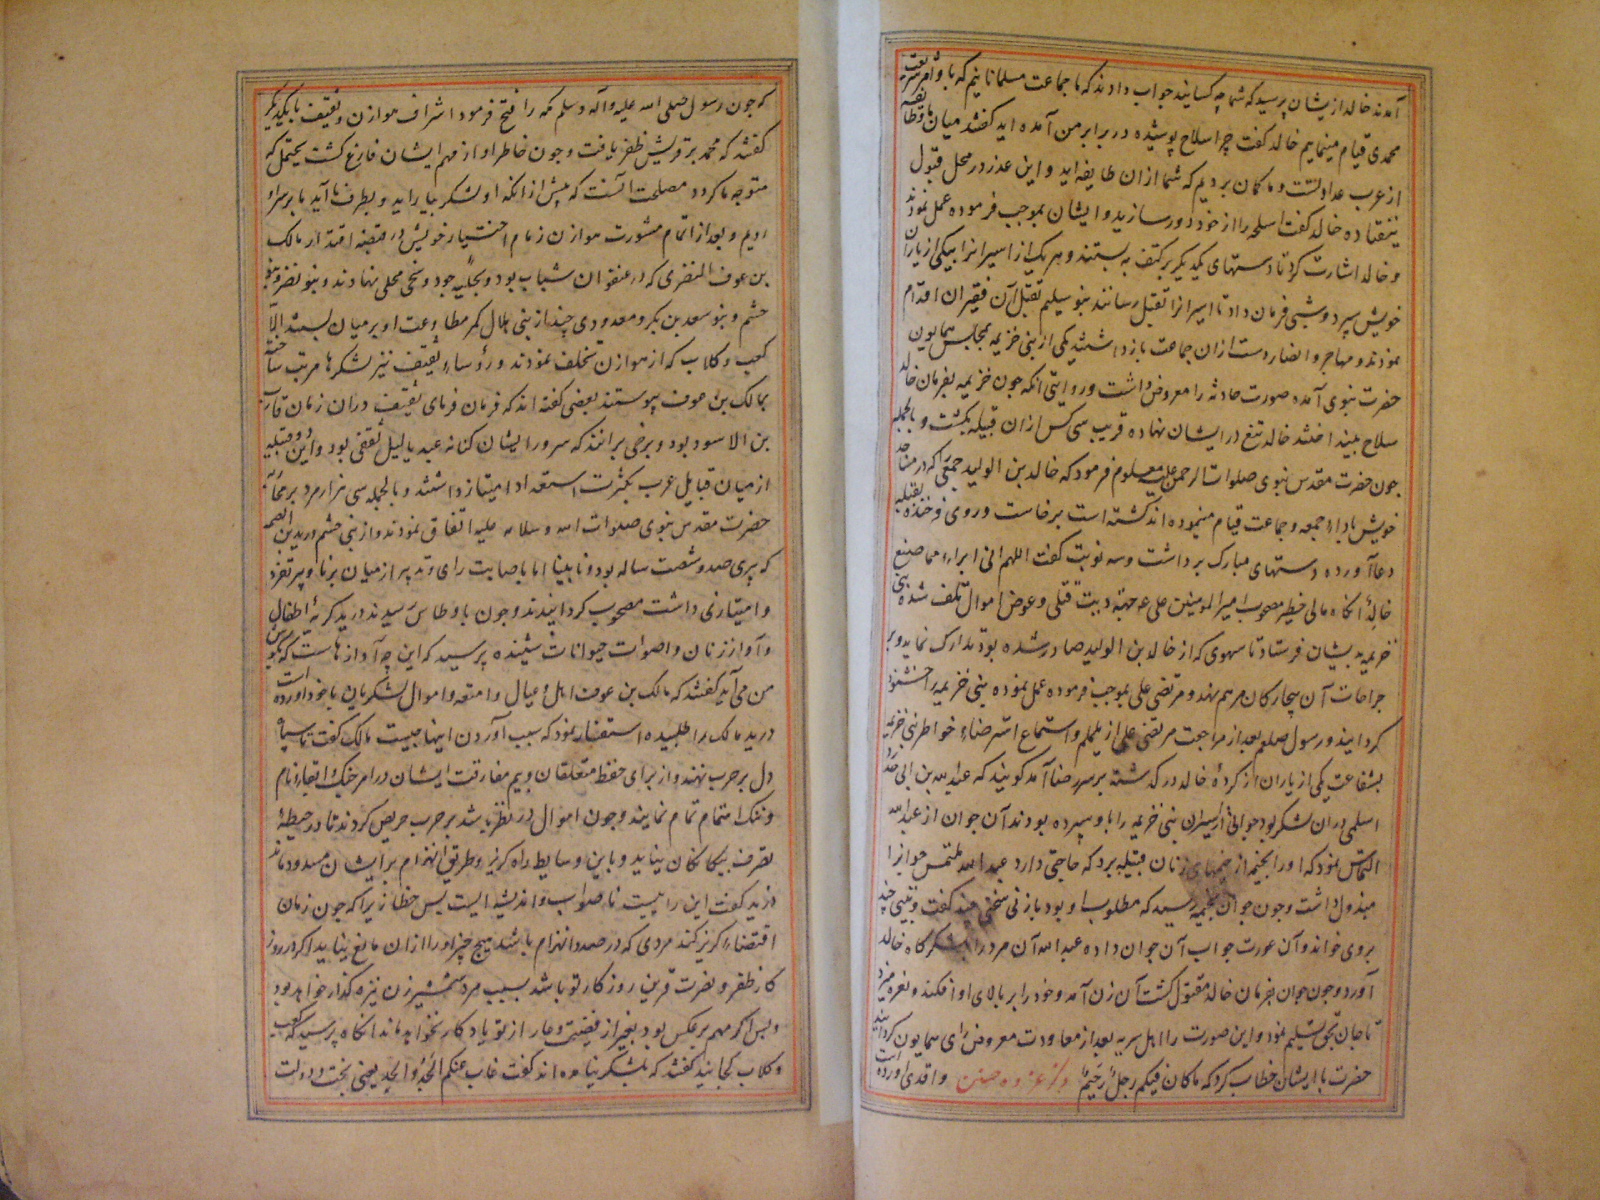 آمدند خالد ازیشان پرسید که شما چه کسانید جواب دادند که ما جماعت مسلمانانیم که با وامر شریعت
محمدی قیام مینماییم خالد گفت چرا سلاح پوشیده در برابر من آمده اید گفتند میان ما و طایفه
از عرب عداوتست و ما گمان بردیم که شما ازان طایفه اید و این عذر در محل قبول
نیفتاده خالد گفت اسلحه را از خود دور سازید و ایشان بموجب فرموده عمل نمودند
و خالد اشارت کرد تا دستهای یکدیگر بر کتف بستند و هر یک از اسیرانرا بیکی از یاران
خویش سپرد و شبی فرمان داد تا اسیرانرا بقتل رسانند بنو سلیم بقتل آن فقیران اقدام
نمودند و مهاجر و انصار دست ازان جماعت بازداشتند یکی از بنی خزیمه بمجلس همایون
حضرت نبوی آمده صورت حادثه را معروض داشت و روایتی آنکه چون خزیمه بفرمان خالد
سلاح بینداختند خالد تیغ در ایشان نهاده قریب سی کس ازان قبیله بکشت و بالجمله
چون حضرت مقدس نبوی صلوات الرحمن علیه معلوم فرمود که خالد بن الولید جمعی که در مساجد
خویش باداء جمعه و جماعت قیام مینموده اند کشته است برخاست و روی فرخنده بقبله
دعا آورده دستهای مبارک برداشت و سه نوبت گفت اللهم انی ابراء مما صنع
خالد آنکاه مالی خطیر مصحوب امیرالمومنین علی عم جهة دیت قتلی و عوض اموال تلف شده بنی
خزیمه بدیشان فرستاد تا سهوی که از خالد بن الولید صادر شده بود تدارک نماید و بر
جراحات آن بیچارکان مرهم نهد و مرتضی علی بموجب فرموده عمل نموده بنی خزیمه را خشنود
کردانید و رسول صلعم بعد از مراجعت مرتضی علی از یلملم و استماع استرضاء خواطر بنی خزیمه
بشفاعت یکی از یاران از کردۀ خالد درکذشته بر سر رضا آمد کویند که عبدالله بن ابی حدرد
اسلمی دران لشکر بود جوانی از اسیران بنی خزیمه را باو سپرده بودند آن جوان از عبدالله
التماس نمود که او را بخیمه از خیمهای زنان قبیله برد که حاجتی دارد عبدالله ملتمس جوانرا
مبذول داشت و چون جوان بخیمه رسید که مطلوب او بود با زنی سخنی چند گفت و بیتی چند
بروی خواند و آن عورت جواب آن جوان داده عبدالله آن مرد را بلشکرگاه خالد
آورد و چون جوان بفرمان خالد مقتول کشت آن زن آمد و خود را بر بالای او افکند و نعره میزد
تا جان بحق تسلیم نمود و این صورت را اهل سریه بعد از معاودت معروض رای همایون کردانیدند
حضرت با ایشان خطاب کرد که ما کان فیکم رجل رحیم ذکر غزوه حنین واقدی آورده است
که چون رسول صلی الله علیه و آله و سلم مکه را فتح فرمود اشراف هوازن و ثقیف با یکدیگر
گفتند که محمد بر قریش ظفر یافت و چون خاطر او از مهم ایشان فارغ گشت یحتمل که
متوجه ما کردد مصلحت آنست که پیش ازانکه او لشکر بیاراید و بطرف ما آید ما بر سر او
رویم و بعد از اتمام مشورت هوازن زمام اختیار خویش در قبضه اقتدار مالک
بن عوف النضری که در عنفوان شباب بود و بحلیه جود و سخی محلی نهادند و بنو نضر و بنو
جشم و بنو سعد بن بکر و معدودی چند از بنی هلال کمر مطاوعت او بر میان بستند الا
کعب و کلاب که از هوازن تخلف نمودند و رؤساء ثقیف نیز لشکرها مرتب ساخته
بمالک بن عوف پیوستند بعضی کفته اند که فرمان فرمای ثقیف دران زمان قارب
بن الاسود بود و برخی برانند که سرور ایشان کنانه عبد یالیل ثقفی بود و این دو قبیله
از میان قبایل عرب بکثرت استعداد امتیاز داشتند و بالجمله سی هزار مرد بر محاربه
حضرت مقدس نبوی صلوات الله و سلامه علیه اتفاق نمودند و از بنی جشم درید بن الصمه
که پیری صد و شصت ساله بود و نابینا اما باصابت رای و تدبیر از میان برنا و پیر تفرد
و امتیازی داشت مصحوب کردانیدند و چون باوطاس رسیدند درید کریه اطفال
و آواز زنان و اصوات حیوانات شنیده پرسید که این چه آوازهاست که بگوش
من می آید گفتند که مالک بن عوف اهل و عیال و امتعه و اموال لشکریان با خود آورده است
درید مالک را طلبیده استفسار نمود که سبب آوردن اینها چیست مالک گفت تا سپاه
دل بر حرب نهند و از برای حفظ متعلقان و بیم مفارقت ایشان در امر جنگ و ابقاء نام
و ننک اهتمام تمام نمایند و چون اموال در نظر باشد بر حرب حریص کردند تا در حیطۀ
تصرف بیکانکان نیاید و باین وسایط راه کریز و طریق انهزام بر ایشان مسدود ماند
درید گفت این رای نیست ناصواب و اندیشه ایست بس خطا زیرا که چون زمان
اقتضاء کریز کند مردی که در صدد انهزام باشد هیچ چیز او را ازان مانع نیاید اکر در روز
کار ظفر و نصرت قرین روزکار تو باشد بسبب مرد شمشیر زن نیزه گذار خواهد بود
و بس اکر مهم بر عکس بود بغیر از فضیحت و عار از تو یادکار نخواهد ماند آنکاه پرسید که کعب
و کلاب کجا نیند گفتند که بلشکر نیامده اند گفت غاب عنکم الجد و الحد یعنی بخت و دولت